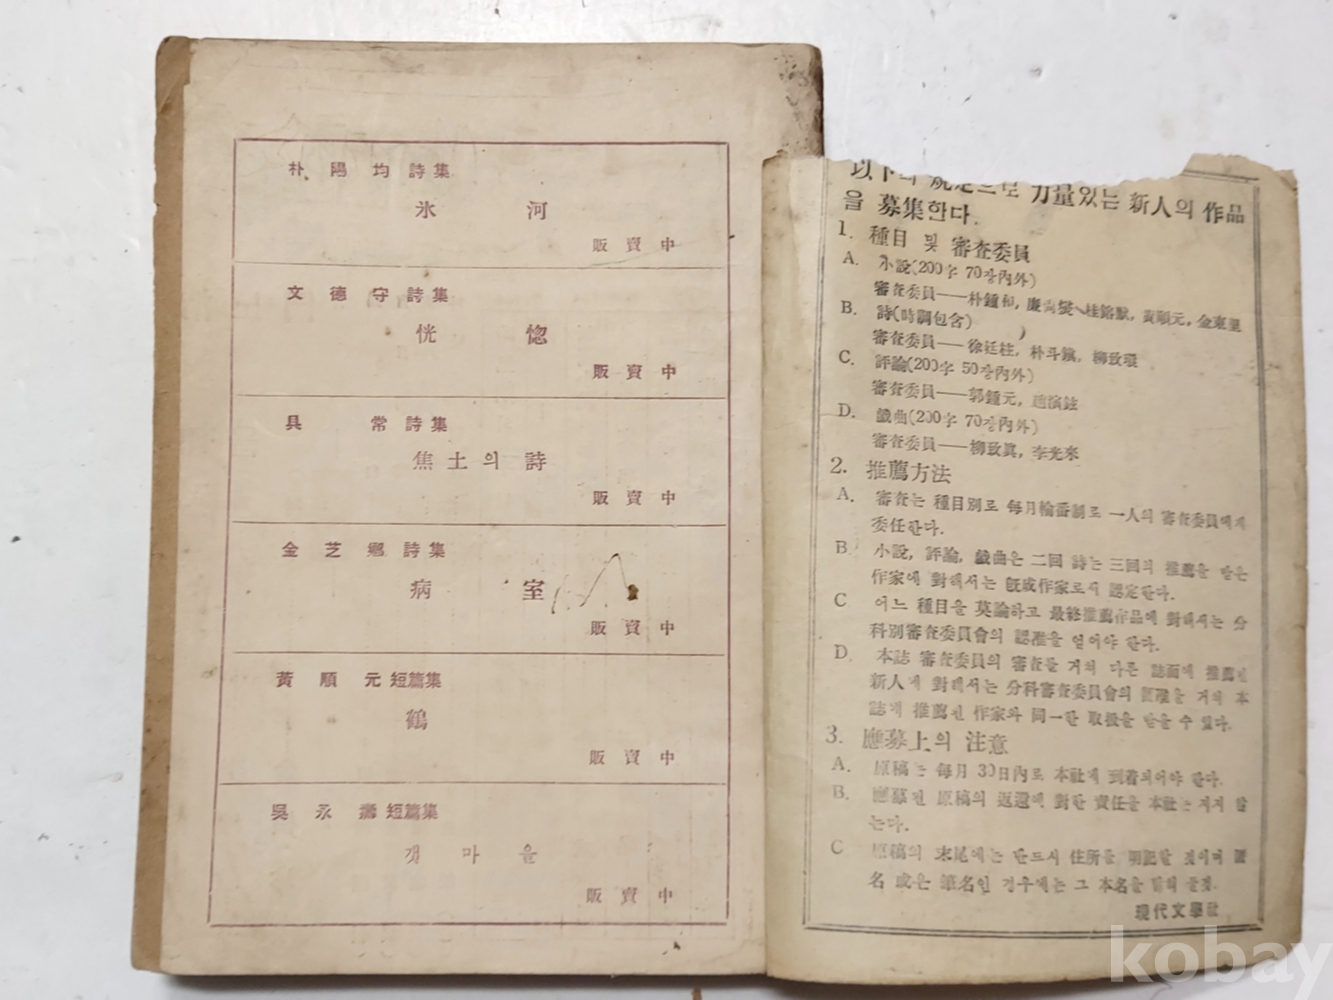 朴 陽 均 詩集
氷 河
販 賣 中
文 德 守 詩集
恍 惚
販 賣 中
具 常 詩集
焦 土 의 詩
販 賣 中
金 芝 鄕 詩集
病 室
販 賣 中
黃 順 元 短篇集
鶴
販 賣 中
吳 永 壽 短篇集
갯 마 을
販 賣 中
以下의 規定으로 力量있는 新人의 作品
을 募集한다.
1. 種目 및 審査委員
A. 小說(200字 70장內外)
審査委員——朴鍾和, 廉尙燮, 桂鎔默, 黃順元, 金東里
B. 詩(時調包含)
審査委員——徐廷柱, 朴斗鎭, 柳致環
C. 評論(200字 50장內外)
審査委員——郭鍾元, 趙演鉉
D. 戱曲(200字 70장內外)
審査委員——柳致眞, 李光來
2. 推薦方法
A. 審査는 種目別로 每月輪番制로 一人의 審査委員에게
委任한다.
B 小說, 評論, 戱曲은 二回 詩는 三回의 推薦을 받은
作家에 對해서는 旣成作家로서 認定한다.
C 어느 種目을 莫論하고 最終推薦作品에 對해서는 分
科別審査委員會의 認准을 얻어야 한다.
D. 本誌 審査委員의 審査를 거쳐 다른 誌面에 推薦된
新人에 對해서는 分科審査委員會의 認准을 거쳐 本
誌에 推薦된 作家와 同一한 取扱을 받을 수 있다.
3. 應募上의 注意
A. 原稿는 每月 30日內로 本社에 到着되어야 한다.
B. 應募된 原稿의 返還에 對한 責任을 本社는 지지 않
는다.
C 原稿의 末尾에는 반드시 住所를 明記할 것이며 匿
名 或은 筆名인 경우에는 그 本名을 밝혀 줄것.
現代文學社
kobay